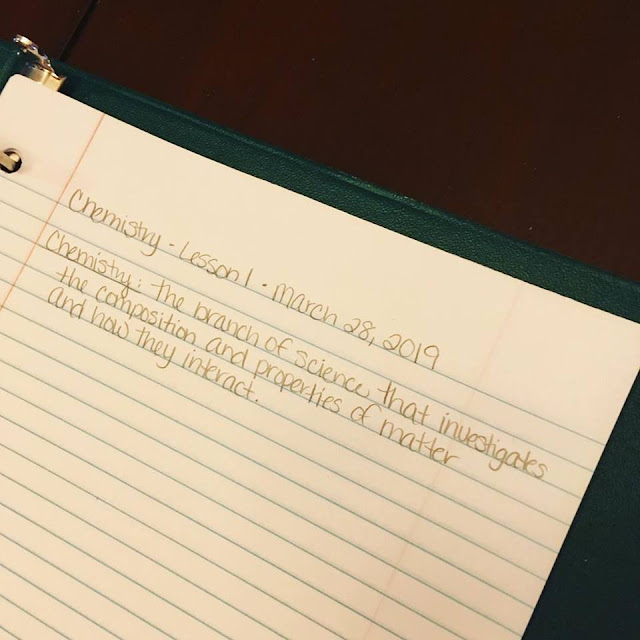 Chemistry - Lesson 1 - March 28, 2019
Chemistry: the branch of science that investigates
the composition and properties of matter
and how they interact.